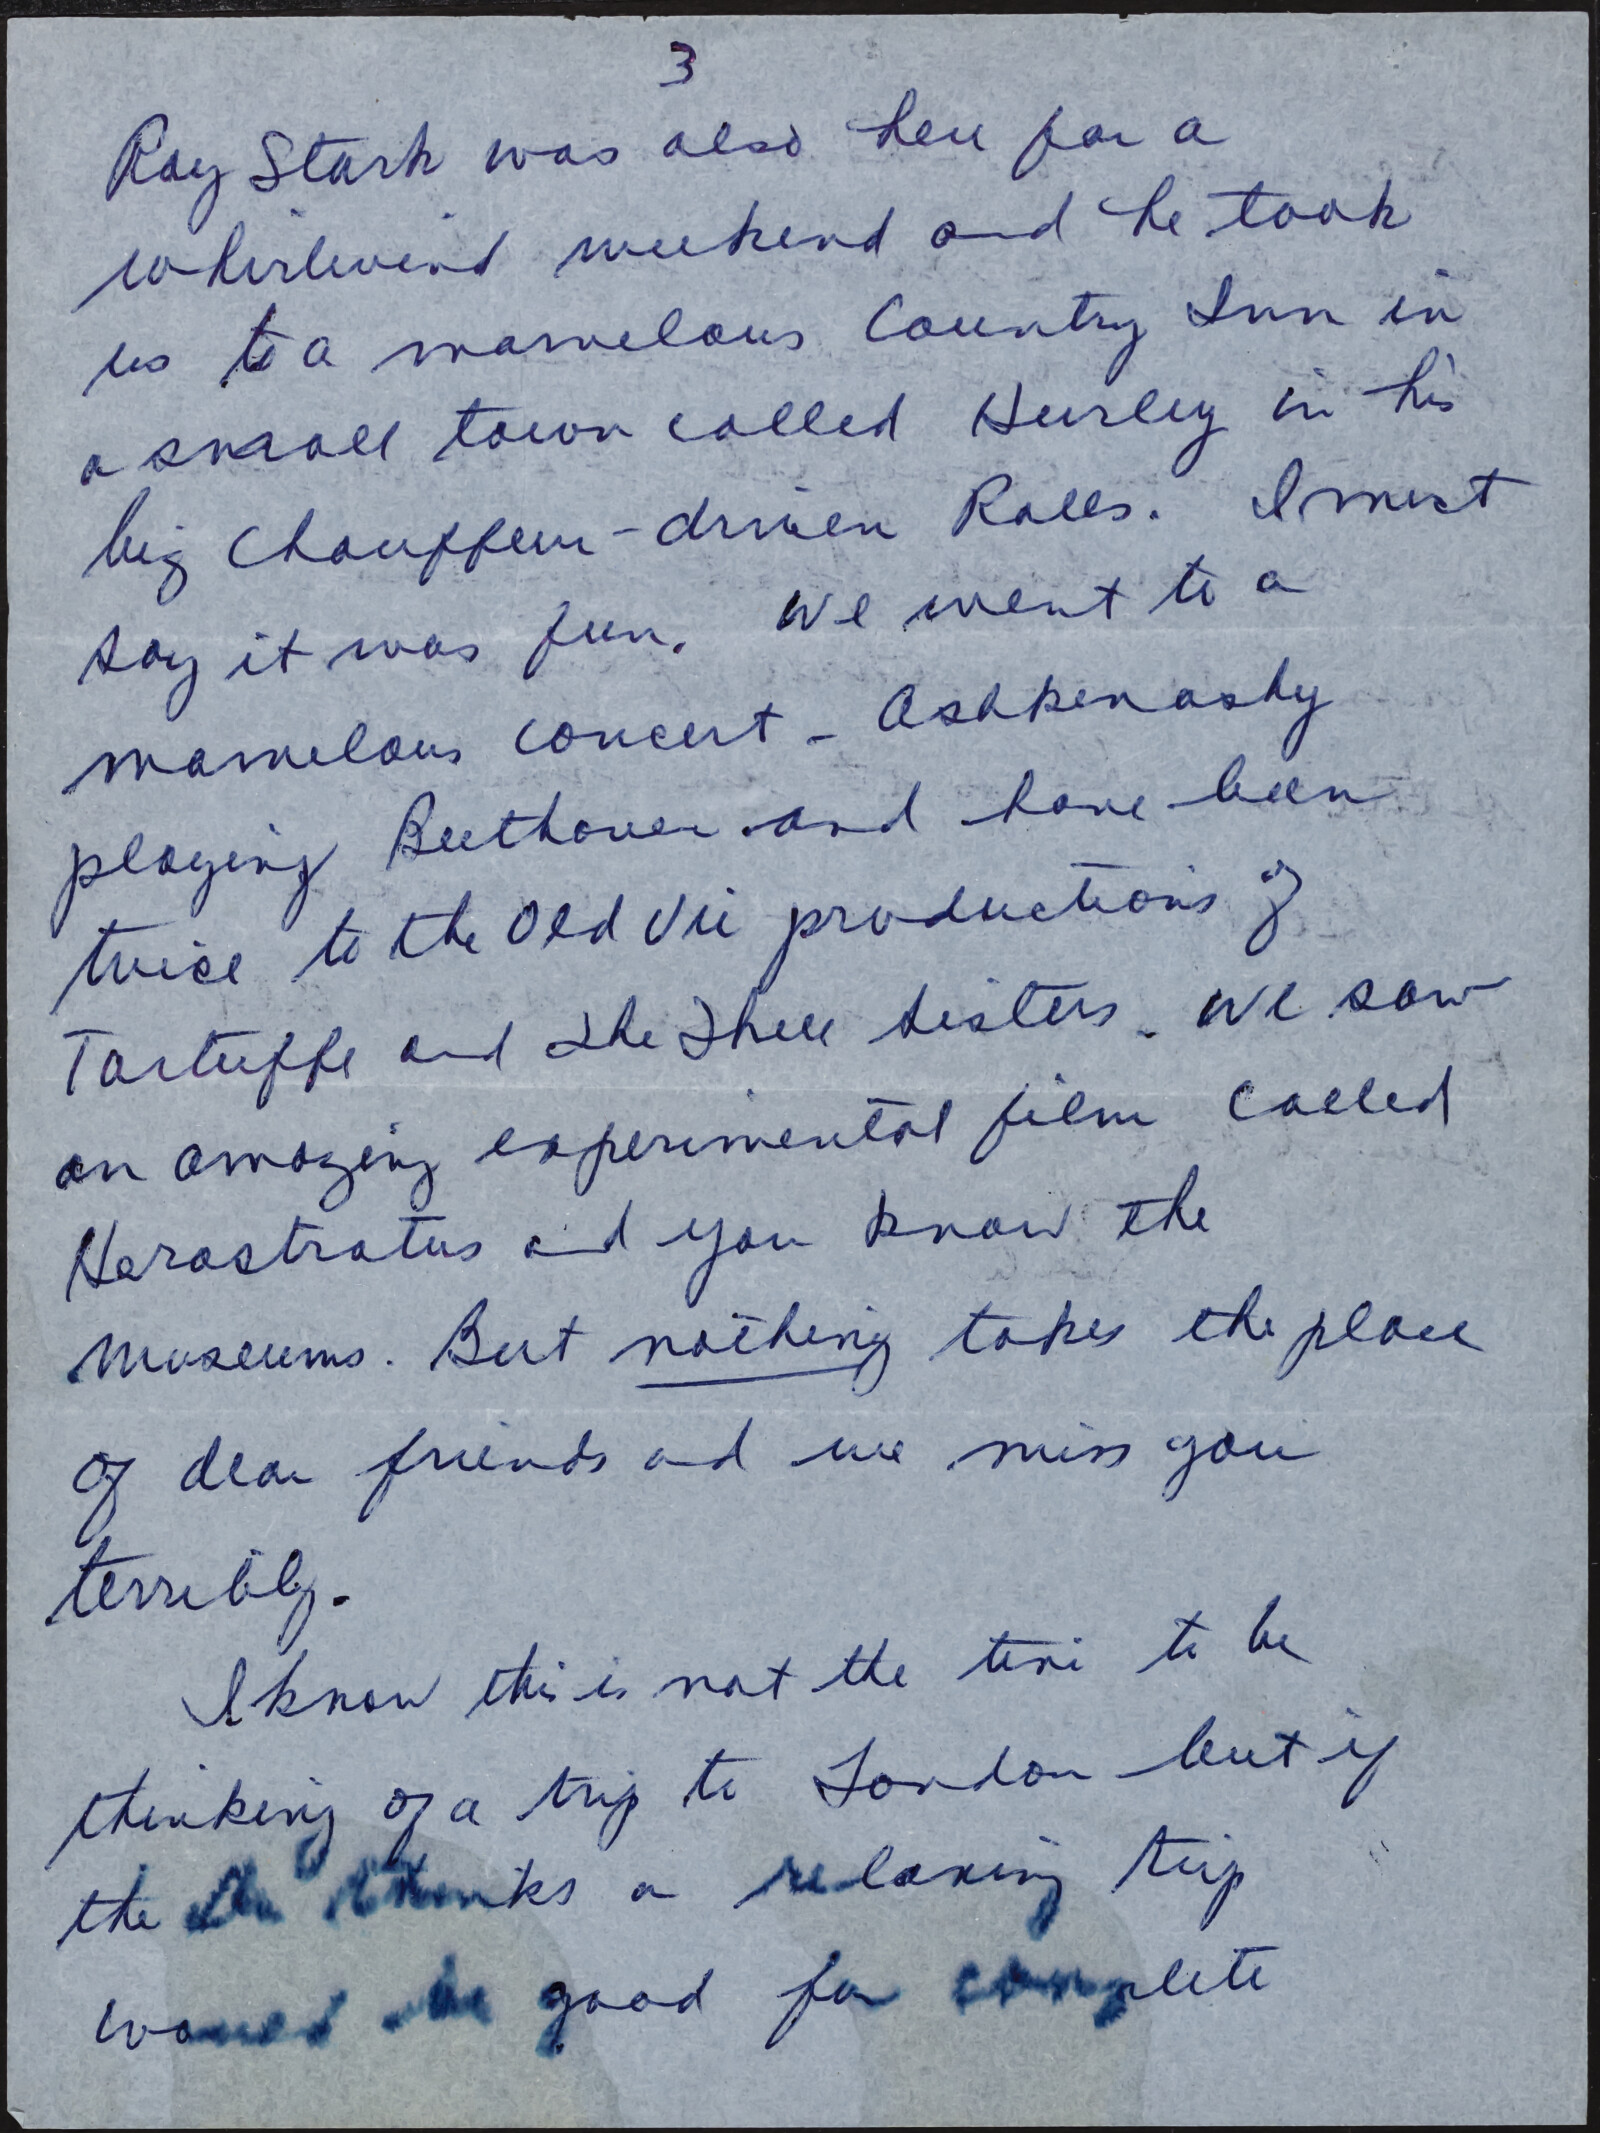 3
Ray Stark was also here for a
whirlwind weekend and he took
us to a marvelous Country Inn in
a small town called Hurley in his
big Chauffeur-driven Rolls. I must
say it was fun. We went to a
marvelous concert - Ashkenashy
playing Beethoven and have been
twice to the Old Vic productions of
Tartuffe and The Three Sisters. We saw
an amazing experimental film called
Herostratus and you know the
museums. But nothing takes the place
of dear friends and we miss you
terribly.
I know this is not the time to be
thinking of a trip to London but if
the Dr. thinks a relaxing trip
would be good for complete